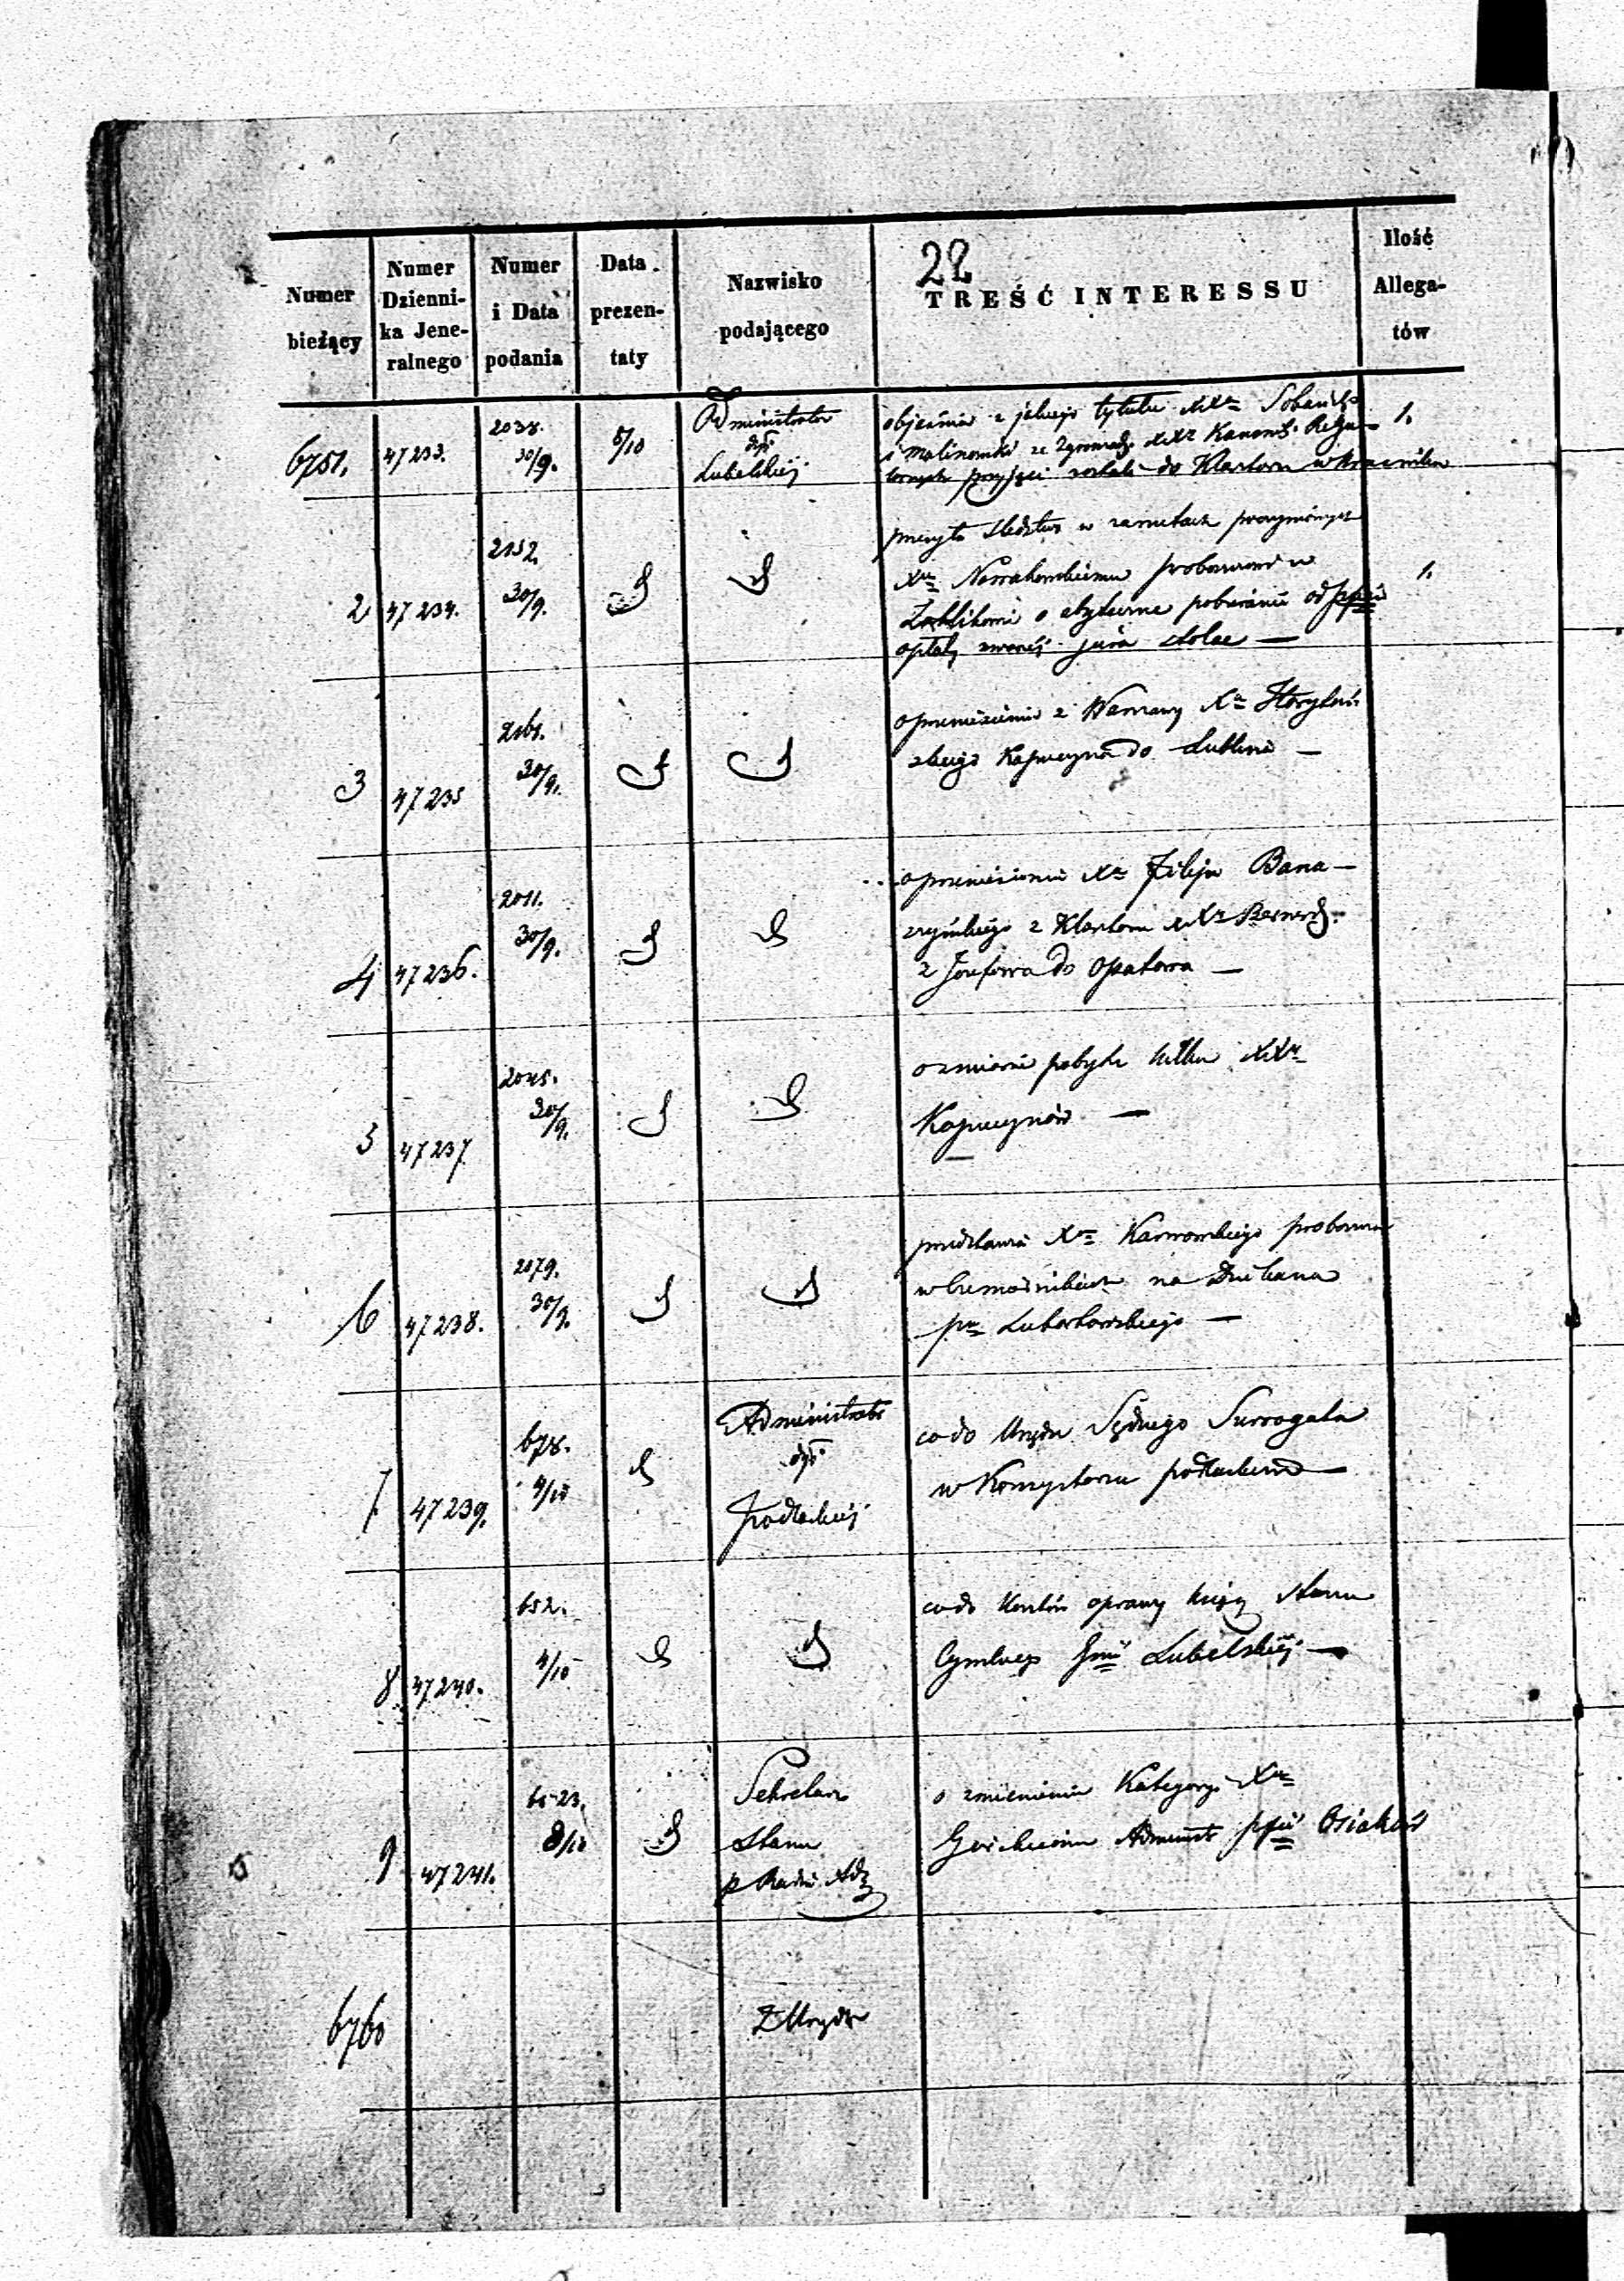 22
Numer bieżący
Numer Dzienni-ka Jene-ralnego
Numer i Data podania
Data prezen-taty
Nazwisko podającego
TREŚĆ INTERESSU
Ilość Allega-tów
6751. 47233. 2038. 30/9. 5/10 Administrator dyec. Lubelskiej
objaśnia z jakiego tytułu XX
i Malinowski ze Zgromadz. XX Kanonik. Regu-
larnych przyjęci zostali do Klasztoru w
1.
2 47234. 2152. 30/9.
w zarzutach
X Nowakowskiemu proboszczowi w
o pobieranie od
opłaty zwanej jura stolae —
1.
3 47235 2161. 30/9.
o przeniesieniu z Warszawy X
Kapucyna do Lublina —
4 47236. 2011. 30/9.
o przeniesieniu X Filipa Bana-
z Klasztoru XX Bernard.
z Józefowa do Opatowa —
5 47237 2045. 30/9.
o zmianie pobytu kilku XX
Kapucynów —
6 47238. 2079. 30/9.
przedstawia X Karwowskiego proboszcza
w na Dziekana
Lubartowskiego —
7 47239. 678. 4/10 Administrator dyec. Podlaskiej
co do Urzędu Sędziego Surrogata
w Konsystorzu podlaskim —
8 47240. 652. 4/10
co do kosztów oprawy ksiąg stanu
Cywilnego Gnii Lubelskiej —
9 47241. 6523. 8/10 Sekretarz Stanu p Radzie Adm
o zmienieniu Kategoryi X
Administ ppii Osiaków
6760 Z Urzędu